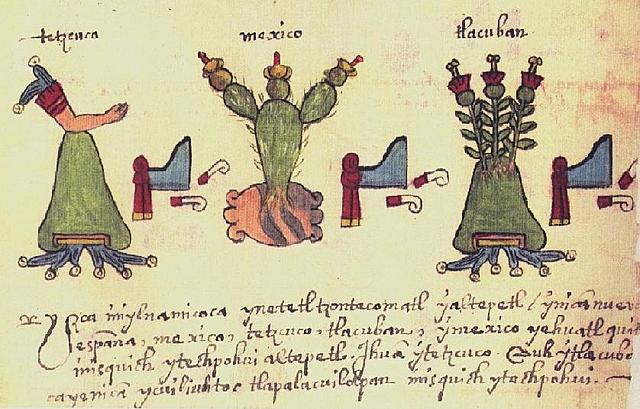 tetzcuca mexico tlacuban
Ysca inilnamicoca ynetetl tzontecomatl yaltepetl ynican nueva
españa, mexico, tetzcuco, tlacuban, ymexico yehuatl quit
misquich ytechpohui altepetl. Ihuā ytetzcuco.
cayenica ycuiliuhtoc tlapalacuilolpan misquich ytechpohui.